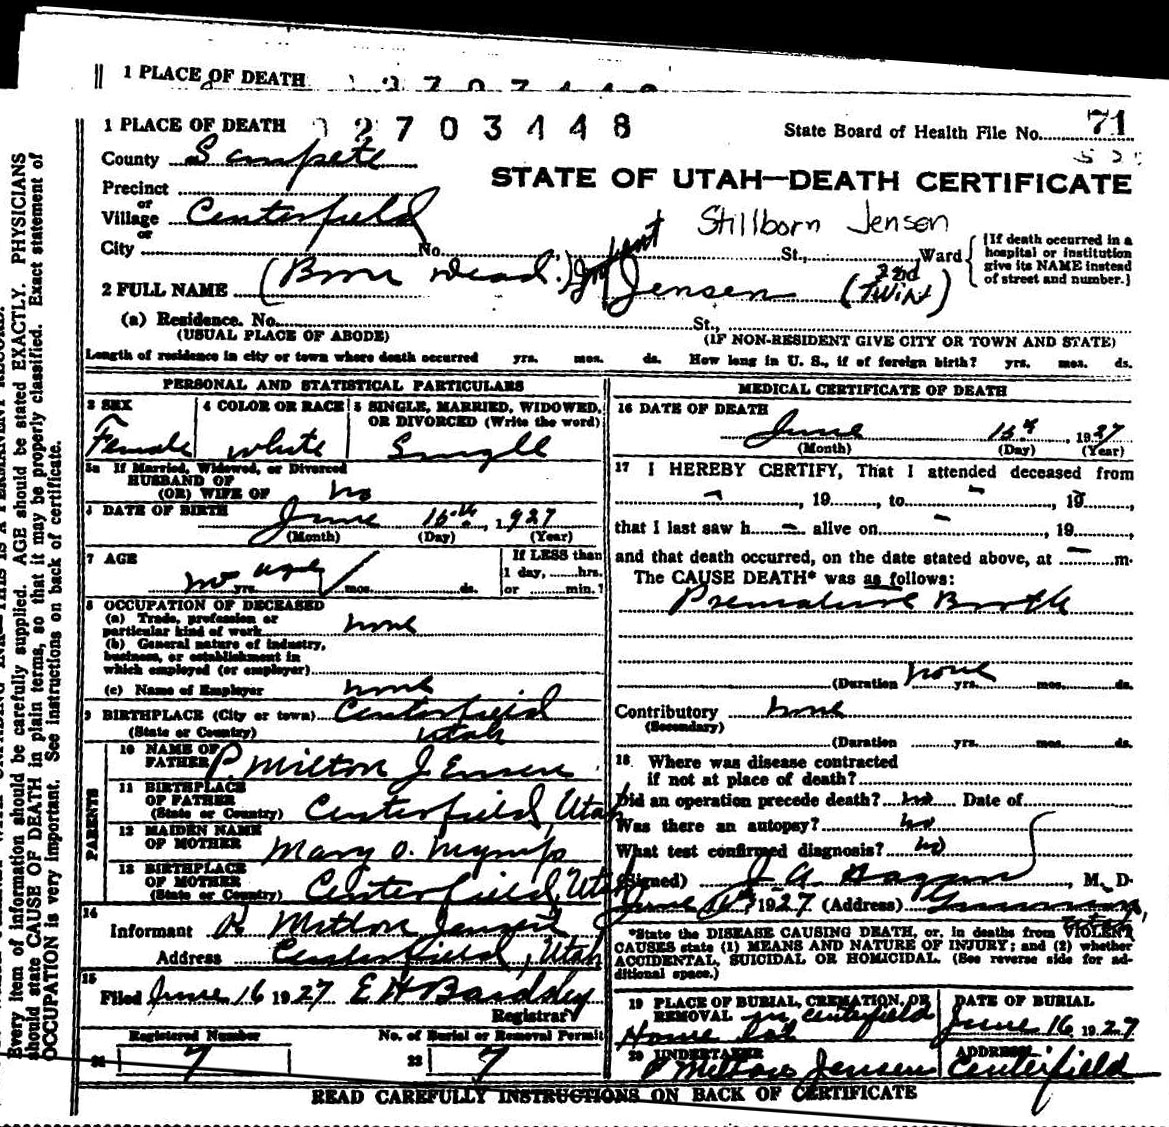 1 PLACE OF DEATH
1 PLACE OF DEATH 2703448
State Board of Health File No. 71
County Sanpete
STATE OF UTAH—DEATH CERTIFICATE
Precinct
or
Village Centerfield
Stillborn Jensen
or
City No. St., Ward
(If death occurred in a hospital or institution give its NAME instead of street and number.)
2 FULL NAME (Born Dead.) Infant Jensen (2nd Twin)
(a) Residence. No. St.,
(USUAL PLACE OF ABODE) (IF NON-RESIDENT GIVE CITY OR TOWN AND STATE)
Length of residence in city or town where death occurred yrs. mos. ds. How long in U. S., if of foreign birth? yrs. mos. ds.
PERSONAL AND STATISTICAL PARTICULARS
3 SEX 4 COLOR OR RACE 5 SINGLE, MARRIED, WIDOWED,
OR DIVORCED (Write the word)
Female white Single
5a If Married, Widowed, or Divorced
HUSBAND OF
(OR) WIFE OF no
DATE OF BIRTH June 16th, 1927
(Month) (Day) (Year)
7 AGE If LESS than
1 day, hrs.
yrs. mos. ds. or min.?
8 OCCUPATION OF DECEASED
(a) Trade, profession or
particular kind of work none
(b) General nature of industry,
business, or establishment in
which employed (or employer)
(c) Name of Employer none
9 BIRTHPLACE (City or town) Centerfield
(State or Country) Utah
PARENTS
10 NAME OF
FATHER P. Milton Jensen
11 BIRTHPLACE
OF FATHER
(State or Country) Centerfield, Utah
12 MAIDEN NAME
OF MOTHER Mary O.
13 BIRTHPLACE
OF MOTHER
(State or Country) Centerfield, Utah
14
Informant P Milton Jensen
Address Centerfield, Utah
15
Filed June 16 1927 E H Bardsley
Registrar
Registered Number No. of Burial or Removal Permit
21 7 22 7
MEDICAL CERTIFICATE OF DEATH
16 DATE OF DEATH
June 16th, 1927
(Month) (Day) (Year)
17 I HEREBY CERTIFY, That I attended deceased from
, 19, to , 19,
that I last saw h alive on , 19,
and that death occurred, on the date stated above, at m.
The CAUSE DEATH* was as follows:
Premature Birth
(Duration none yrs. mos. ds.
Contributory none
(Secondary)
(Duration yrs. mos. ds.
18. Where was disease contracted
if not at place of death?
Did an operation precede death? no Date of
Was there an autopsy? no
What test confirmed diagnosis? no
(Signed) J. A. Hagan, M. D.
June 16, 1927 (Address) Gunnison,
*State the DISEASE CAUSING DEATH, or, in deaths from VIOLENT
CAUSES state (1) MEANS AND NATURE OF INJURY; and (2) whether
ACCIDENTAL, SUICIDAL OR HOMICIDAL. (See reverse side for ad-
ditional space.)
19 PLACE OF BURIAL, CREMATION, OR DATE OF BURIAL
REMOVAL in Centerfield
Home lot June 16 1927
20 UNDERTAKER ADDRESS
P Milton Jensen Centerfield
READ CAREFULLY INSTRUCTIONS ON BACK OF CERTIFICATE
Every item of information should be carefully supplied. AGE should be stated EXACTLY. PHYSICIANS
should state CAUSE OF DEATH in plain terms, so that it may be properly classified. Exact statement of
OCCUPATION is very important. See instructions on back of certificate.